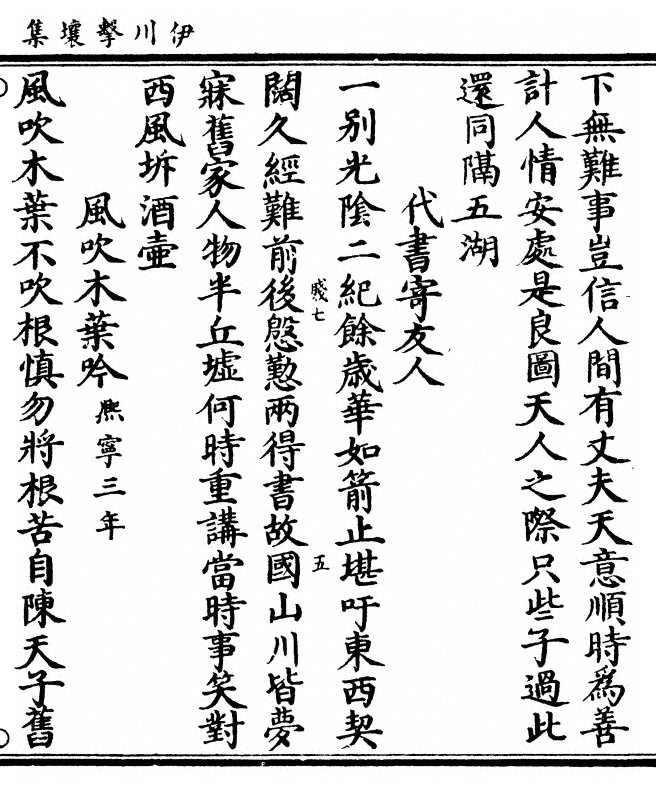 伊川擊壤集
下無難事豈信人間有丈夫天意順時爲善
計人情安處是良圖天人之際只些子過此
還同隔五湖
代書寄友人
一別光陰二紀餘歲華如箭止堪吁東西契
賤七
五
闊久經難前後慇懃兩得書故國山川皆夢
寐舊家人物半丘墟何時重講當時事笑對
西風坼酒壺
風吹木葉吟熈寧三年
風吹木葉不吹根慎勿將根苦自陳天子舊